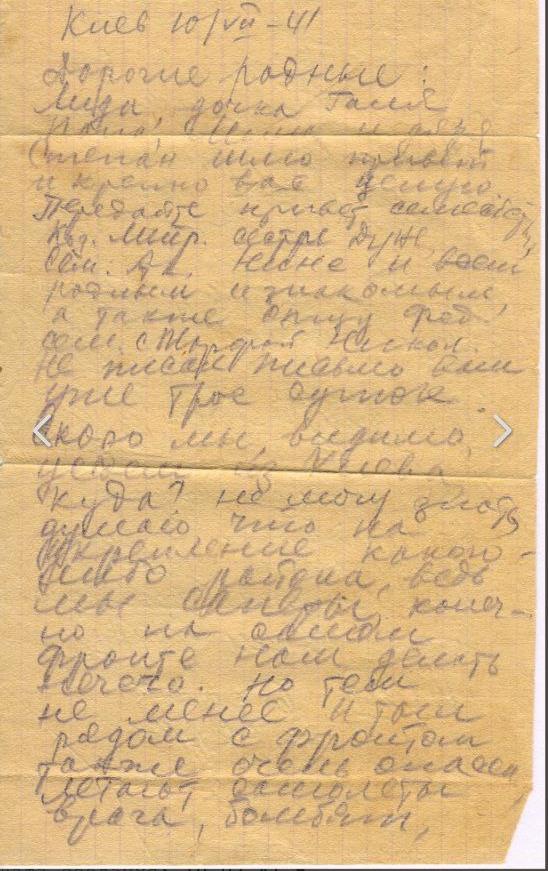 Киев 10/VII-41
Дорогие родные:
Лида, дочка Галя
Степан шлю привет
и крепко вас целую.
Передайте привет
сестре
и всем
родным и знакомым,
а также
Не писал письмо вам
уже трое суток.
Скоро мы, видимо,
уедем из Киева
куда? не могу знать
думаю что на
укрепление какого-
либо района, ведь
мы саперы, конеч-
но на самом
фронте нам делать
нечего. Но тем
не менее и тыл
рядом с фронтом
также очень опасен
летают самолеты
врага, бомбят,